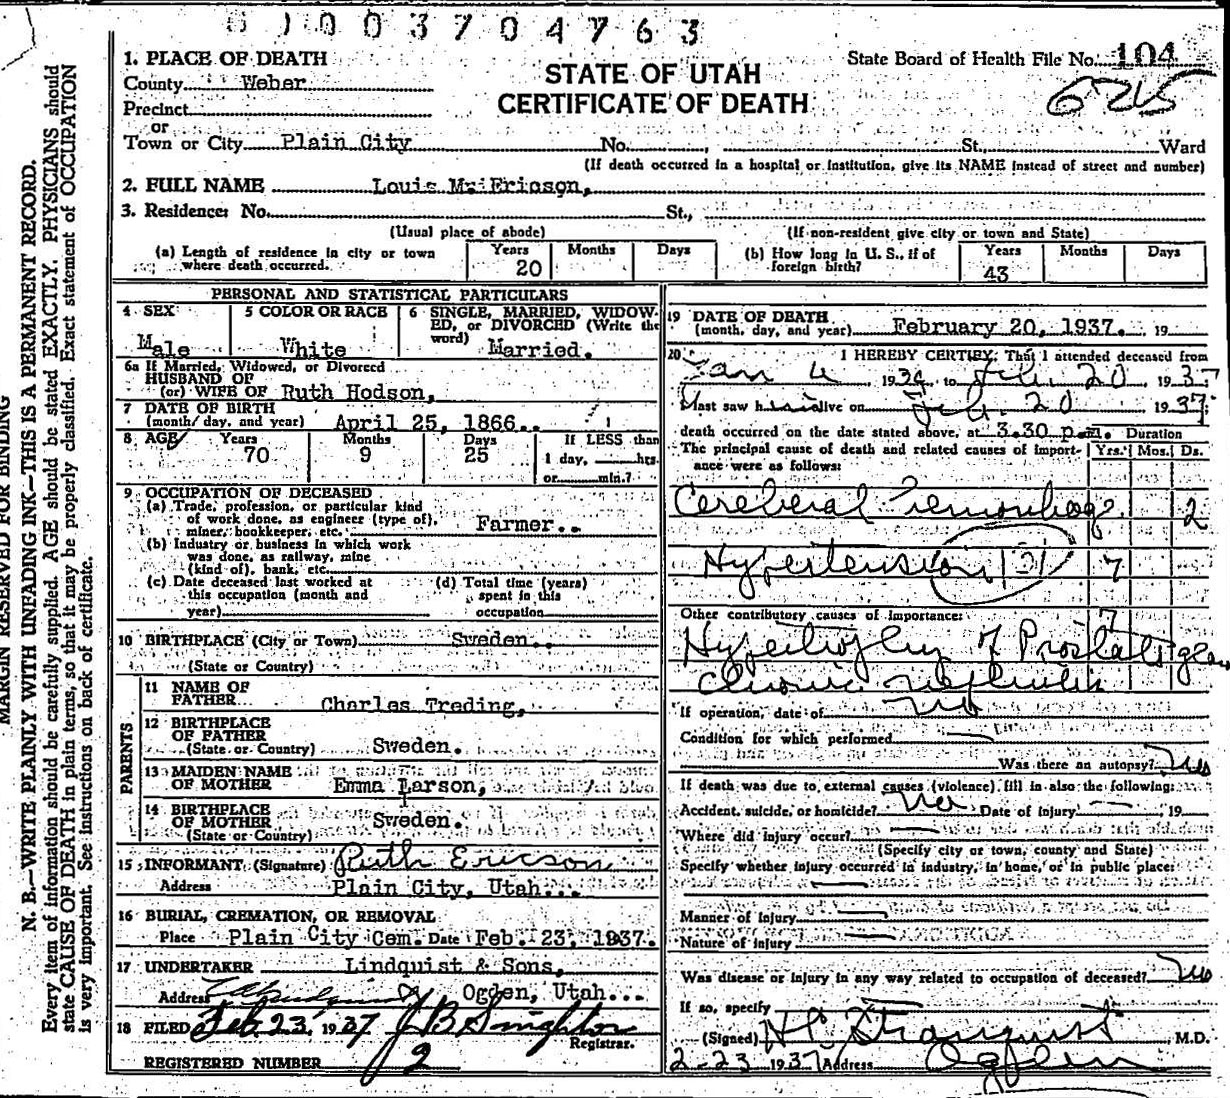 003704763
1. PLACE OF DEATH
County Weber
Precinct
or
Town or City Plain City
STATE OF UTAH
CERTIFICATE OF DEATH
State Board of Health File No. 104
No. , St., Ward
(If death occurred in a hospital or institution, give its NAME instead of street and number)
2. FULL NAME Louis M. Ericson,
3. Residence: No. St.,
(Usual place of abode) (If non-resident give city or town and State)
(a) Length of residence in city or town where death occurred. Years 20 Months Days
(b) How long in U. S., if of foreign birth? Years 43 Months Days
PERSONAL AND STATISTICAL PARTICULARS
4 SEX Male
5 COLOR OR RACE White
6 SINGLE, MARRIED, WIDOWED, or DIVORCED (Write the word) Married.
6a If Married, Widowed, or Divorced
HUSBAND OF
(or) WIFE OF Ruth Hodson,
7 DATE OF BIRTH
(month, day, and year) April 25, 1866..
8 AGE Years 70 Months 9 Days 25 If LESS than 1 day, hrs. or min.?
9 OCCUPATION OF DECEASED
(a) Trade, profession, or particular kind
of work done, as engineer (type of),
miner, bookkeeper, etc. Farmer..
(b) Industry or business in which work
was done, as railway, mine
(kind of), bank, etc.
(c) Date deceased last worked at
this occupation (month and
year)
(d) Total time (years)
spent in this
occupation
10 BIRTHPLACE (City or Town) Sweden..
(State or Country)
PARENTS
11 NAME OF
FATHER Charles Treding,
12 BIRTHPLACE
OF FATHER
(State or Country) Sweden.
13 MAIDEN NAME
OF MOTHER Emma Larson,
14 BIRTHPLACE
OF MOTHER
(State or Country) Sweden.
15 INFORMANT (Signature) Ruth Ericson
Address Plain City, Utah...
16 BURIAL, CREMATION, OR REMOVAL
Place Plain City Cem. Date Feb. 23, 1937.
17 UNDERTAKER Lindquist & Sons,
Address Ogden, Utah...
18 FILED Feb 23, 1937
Registrar.
REGISTERED NUMBER 2
19 DATE OF DEATH
(month, day, and year) February 20, 1937. 19
20 I HEREBY CERTIFY, That I attended deceased from
Jan 193 to Feb. 20 1937
I last saw h alive on Feb. 20 1937;
death occurred on the date stated above, at 3.30 p.m. Duration
The principal cause of death and related causes of importance were as follows: Yrs. Mos. Ds.
Cerebral Hemorrhage 2
Hypertension 131 7
Other contributory causes of importance:
Hypertrophy of Prostate gland
Chronic Nephritis
If operation, date of no
Condition for which performed
Was there an autopsy? No
If death was due to external causes (violence) fill in also the following:
Accident, suicide, or homicide? No Date of injury 19
Where did injury occur?
(Specify city or town, county and State)
Specify whether injury occurred in industry, in home, or in public place:
Manner of Injury
Nature of Injury
Was disease or injury in any way related to occupation of deceased? No
If so, specify
(Signed) M.D.
2-23 1937 Address Ogden
MARGIN RESERVED FOR BINDING
N. B.—WRITE PLAINLY WITH UNFADING INK—THIS IS A PERMANENT RECORD.
Every item of information should be carefully supplied. AGE should be stated EXACTLY. PHYSICIANS should
state CAUSE OF DEATH in plain terms, so that it may be properly classified. Exact statement of OCCUPATION
is very important. See instructions on back of certificate.